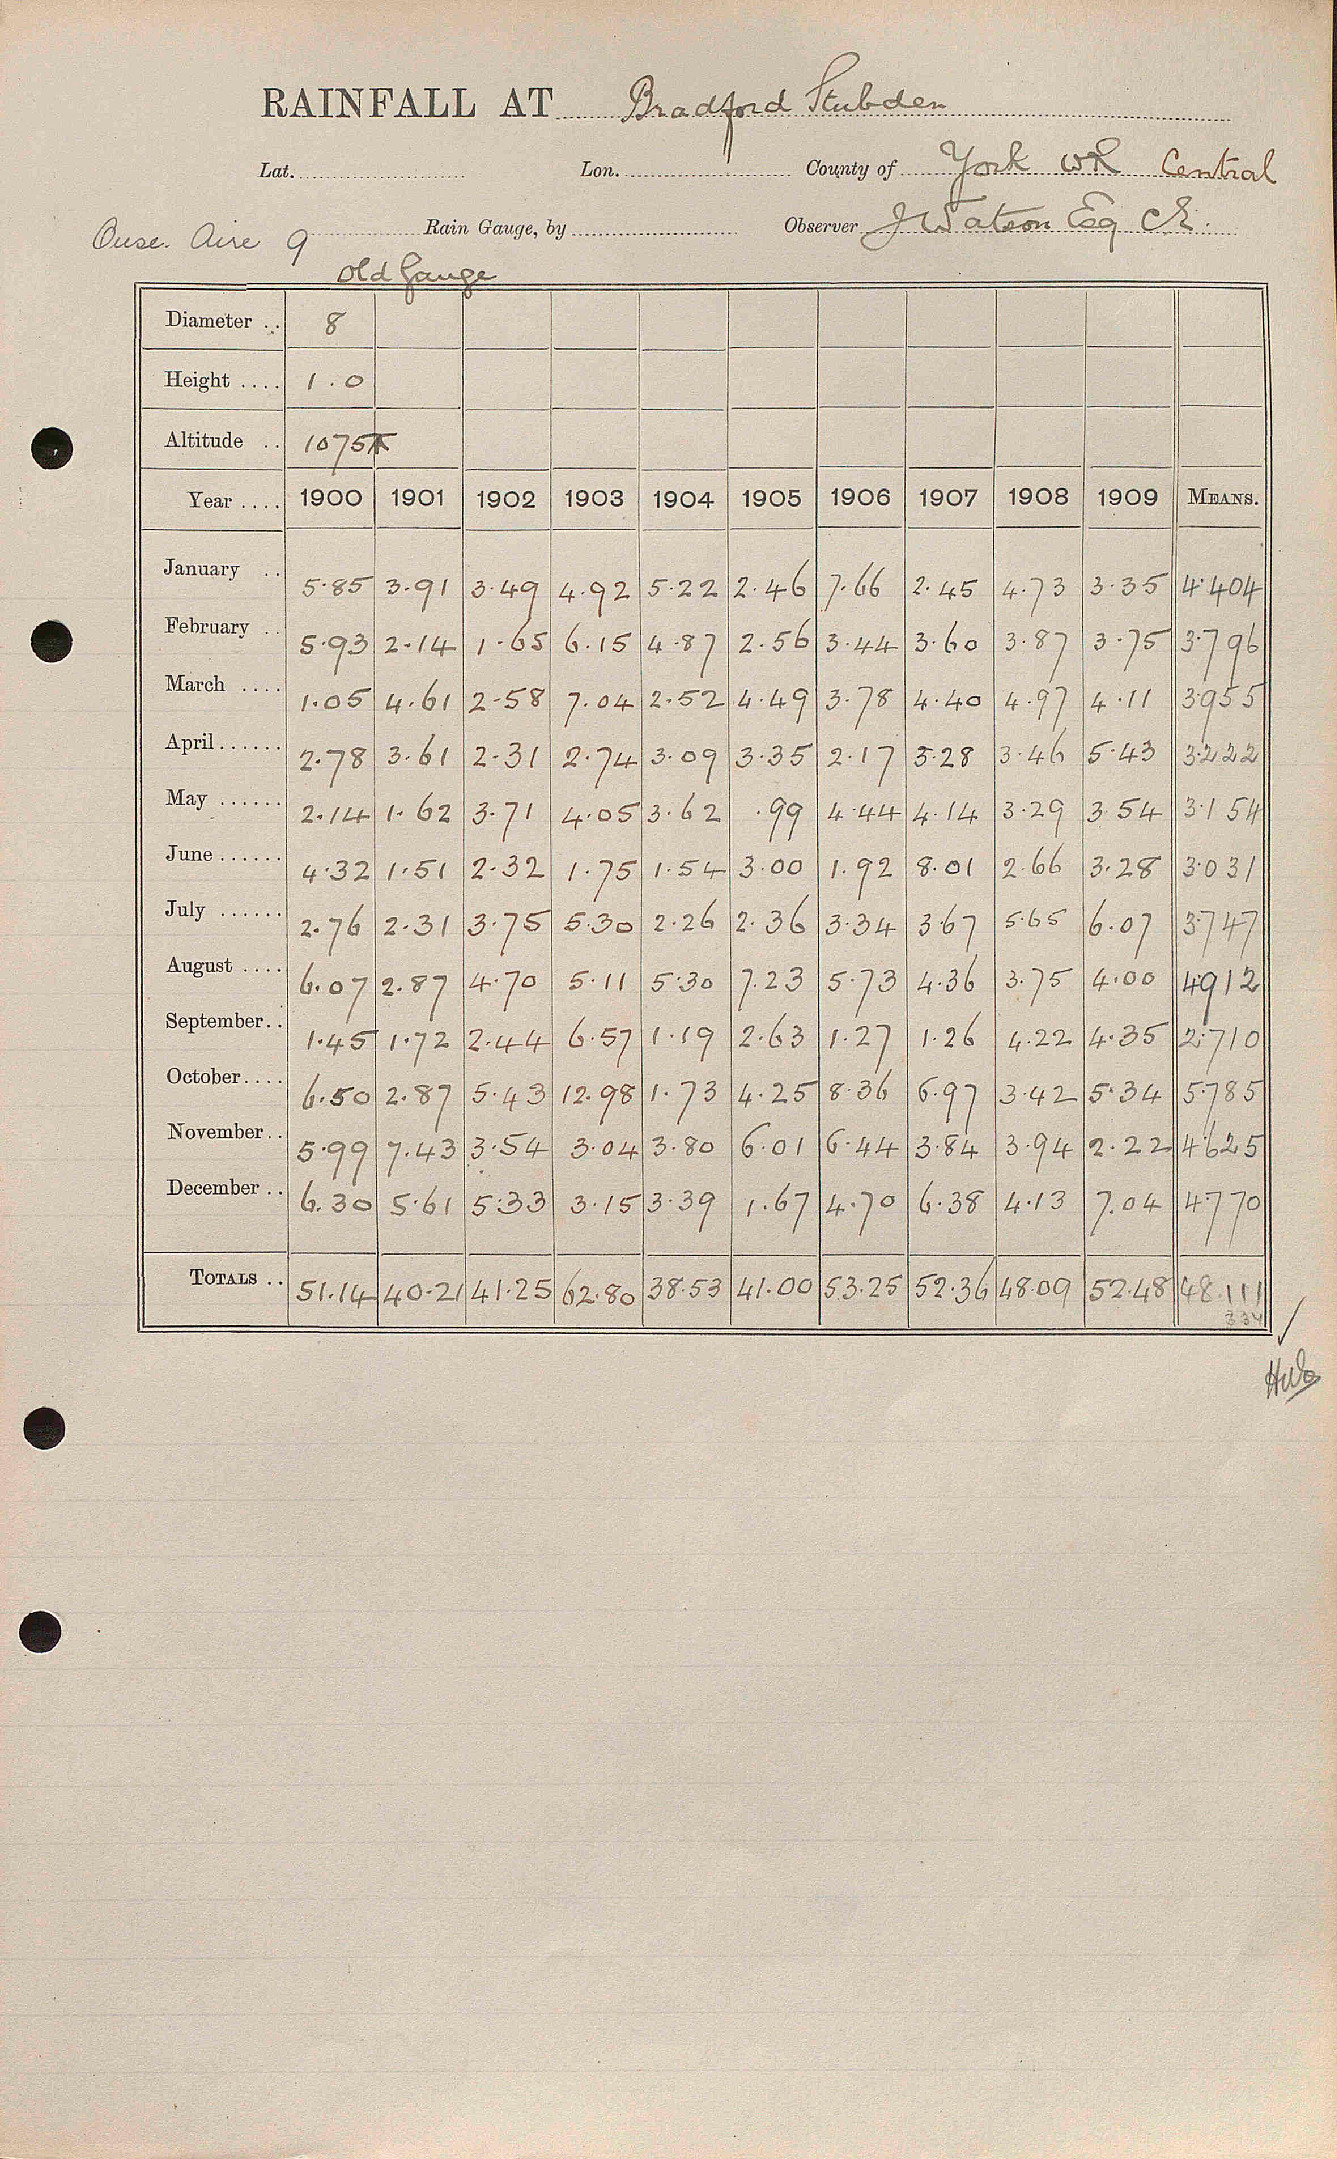 RAINFALL AT Bradford Stubden
Lat. Lon. County of York WR Central
Ouse. Aire 9 Rain Gauge, by Observer J Watson Esq CE.
Old Gauge
Diameter .. 8
Height .... 1.0
Altitude .. 1075T
Year .... 1900 1901 1902 1903 1904 1905 1906 1907 1908 1909 MEANS.
January .. 5.85 3.91 3.49 4.92 5.22 2.46 7.66 2.45 4.73 3.35 4.404
February .. 5.93 2.14 1.65 6.15 4.87 2.56 3.44 3.60 3.87 3.75 3.796
March .... 1.05 4.61 2.58 7.04 2.52 4.49 3.78 4.40 4.97 4.11 3.955
April ...... 2.78 3.61 2.31 2.74 3.09 3.35 2.17 3.28 3.46 5.43 3.222
May ...... 2.14 1.62 3.71 4.05 3.62 .99 4.44 4.14 3.29 3.54 3.154
June ...... 4.32 1.51 2.32 1.75 1.54 3.00 1.92 8.01 2.66 3.28 3.031
July ...... 2.76 2.31 3.75 5.30 2.26 2.36 3.34 3.67 5.65 6.07 3.747
August .... 6.07 2.87 4.70 5.11 5.30 7.23 5.73 4.36 3.75 4.00 4.912
September .. 1.45 1.72 2.44 6.57 1.19 2.63 1.27 1.26 4.22 4.35 2.710
October .... 6.50 2.87 5.43 12.98 1.73 4.25 8.36 6.97 3.42 5.34 5.785
November .. 5.99 7.43 3.54 3.04 3.80 6.01 6.44 3.84 3.94 2.22 4.625
December .. 6.30 5.61 5.33 3.15 3.39 1.67 4.70 6.38 4.13 7.04 4.770
TOTALS .. 51.14 40.21 41.25 62.80 38.53 41.00 53.25 52.36 48.09 52.48 48.111
334